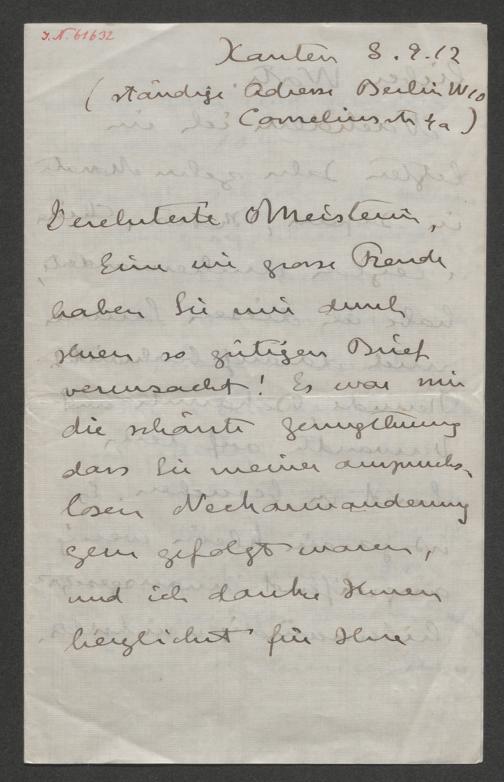 J.N. 61632
Xanten 3.9.12
(ständige Adresse Berlin W10
Corneliusstr 4a)
Verehrteste Meisterin,
Eine wie grosse Freude,
haben Sie mir durch
Ihren so gütigen Brief
verursacht! Es war mir
die schönste Genugthuung
dass Sie meiner anspruchs-
losen Neckarwanderung
gern gefolgt waren,
und ich danke Ihnen
herzlichst für Ihre